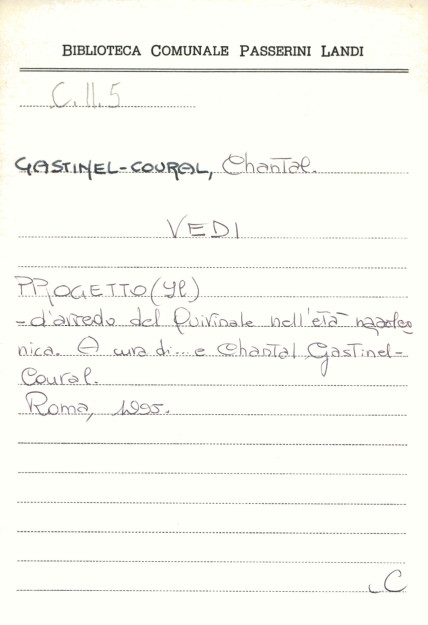 BIBLIOTECA COMUNALE PASSERINI LANDI
C.II.5
GASTINEL-COURAL, Chantal.
VEDI
PROGETTO (Il)
- d'arredo del Quirinale nell'età napoleo
nica. A cura di... e Chantal Gastinel-
Coural.
Roma, 1995.
C